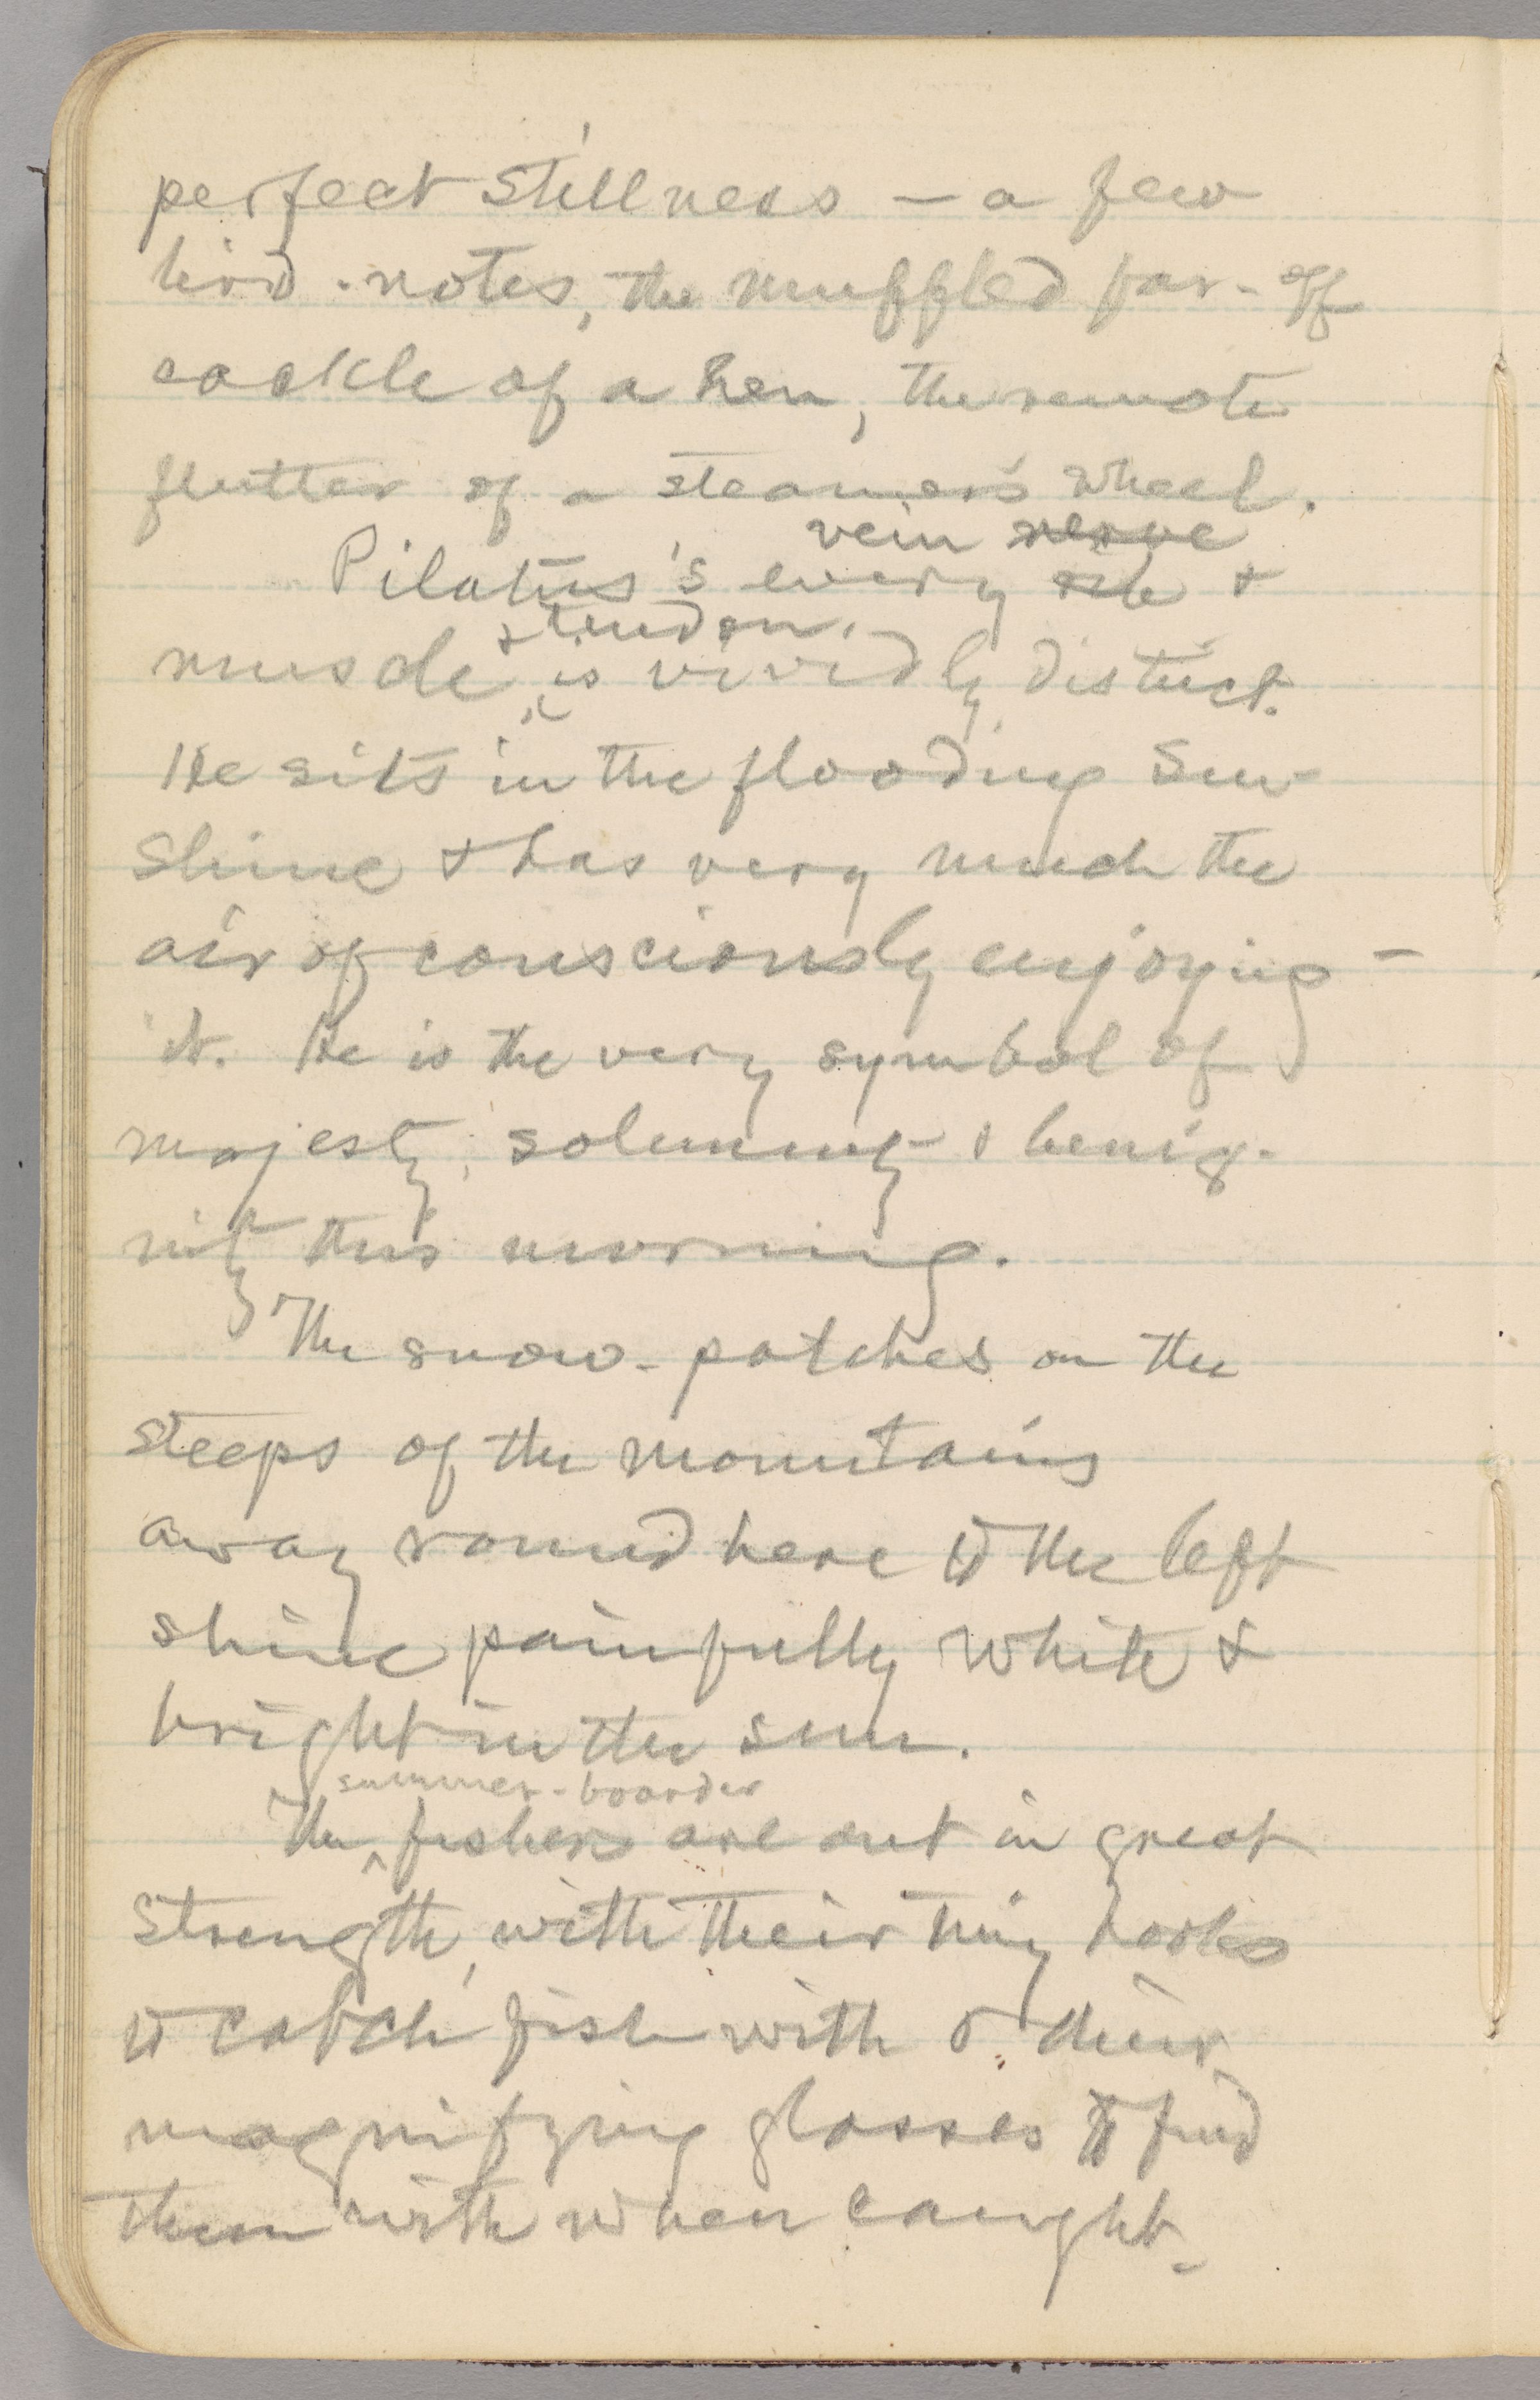 perfect stillness — a few
bird-notes, the muffled far-off
cackle of a hen, the remote
flutter of a steamer's wheel.
vein nerve
Pilatus's every rib &
& tendon,
muscle is vividly distinct.
He sits in the flooding sun-
shine & has very much the
air of consciously enjoying —
it. He is the very symbol of
majesty, solemnity & benig-
nity this morning.
The snow-patches on the
steeps of the mountains
away round here to the left
shine painfully white &
bright in the sun.
summer-boarder
The ^ fishers are out in great
strength, with their tiny hooks
to catch fish with & their
magnifying glasses to find
them with when caught.